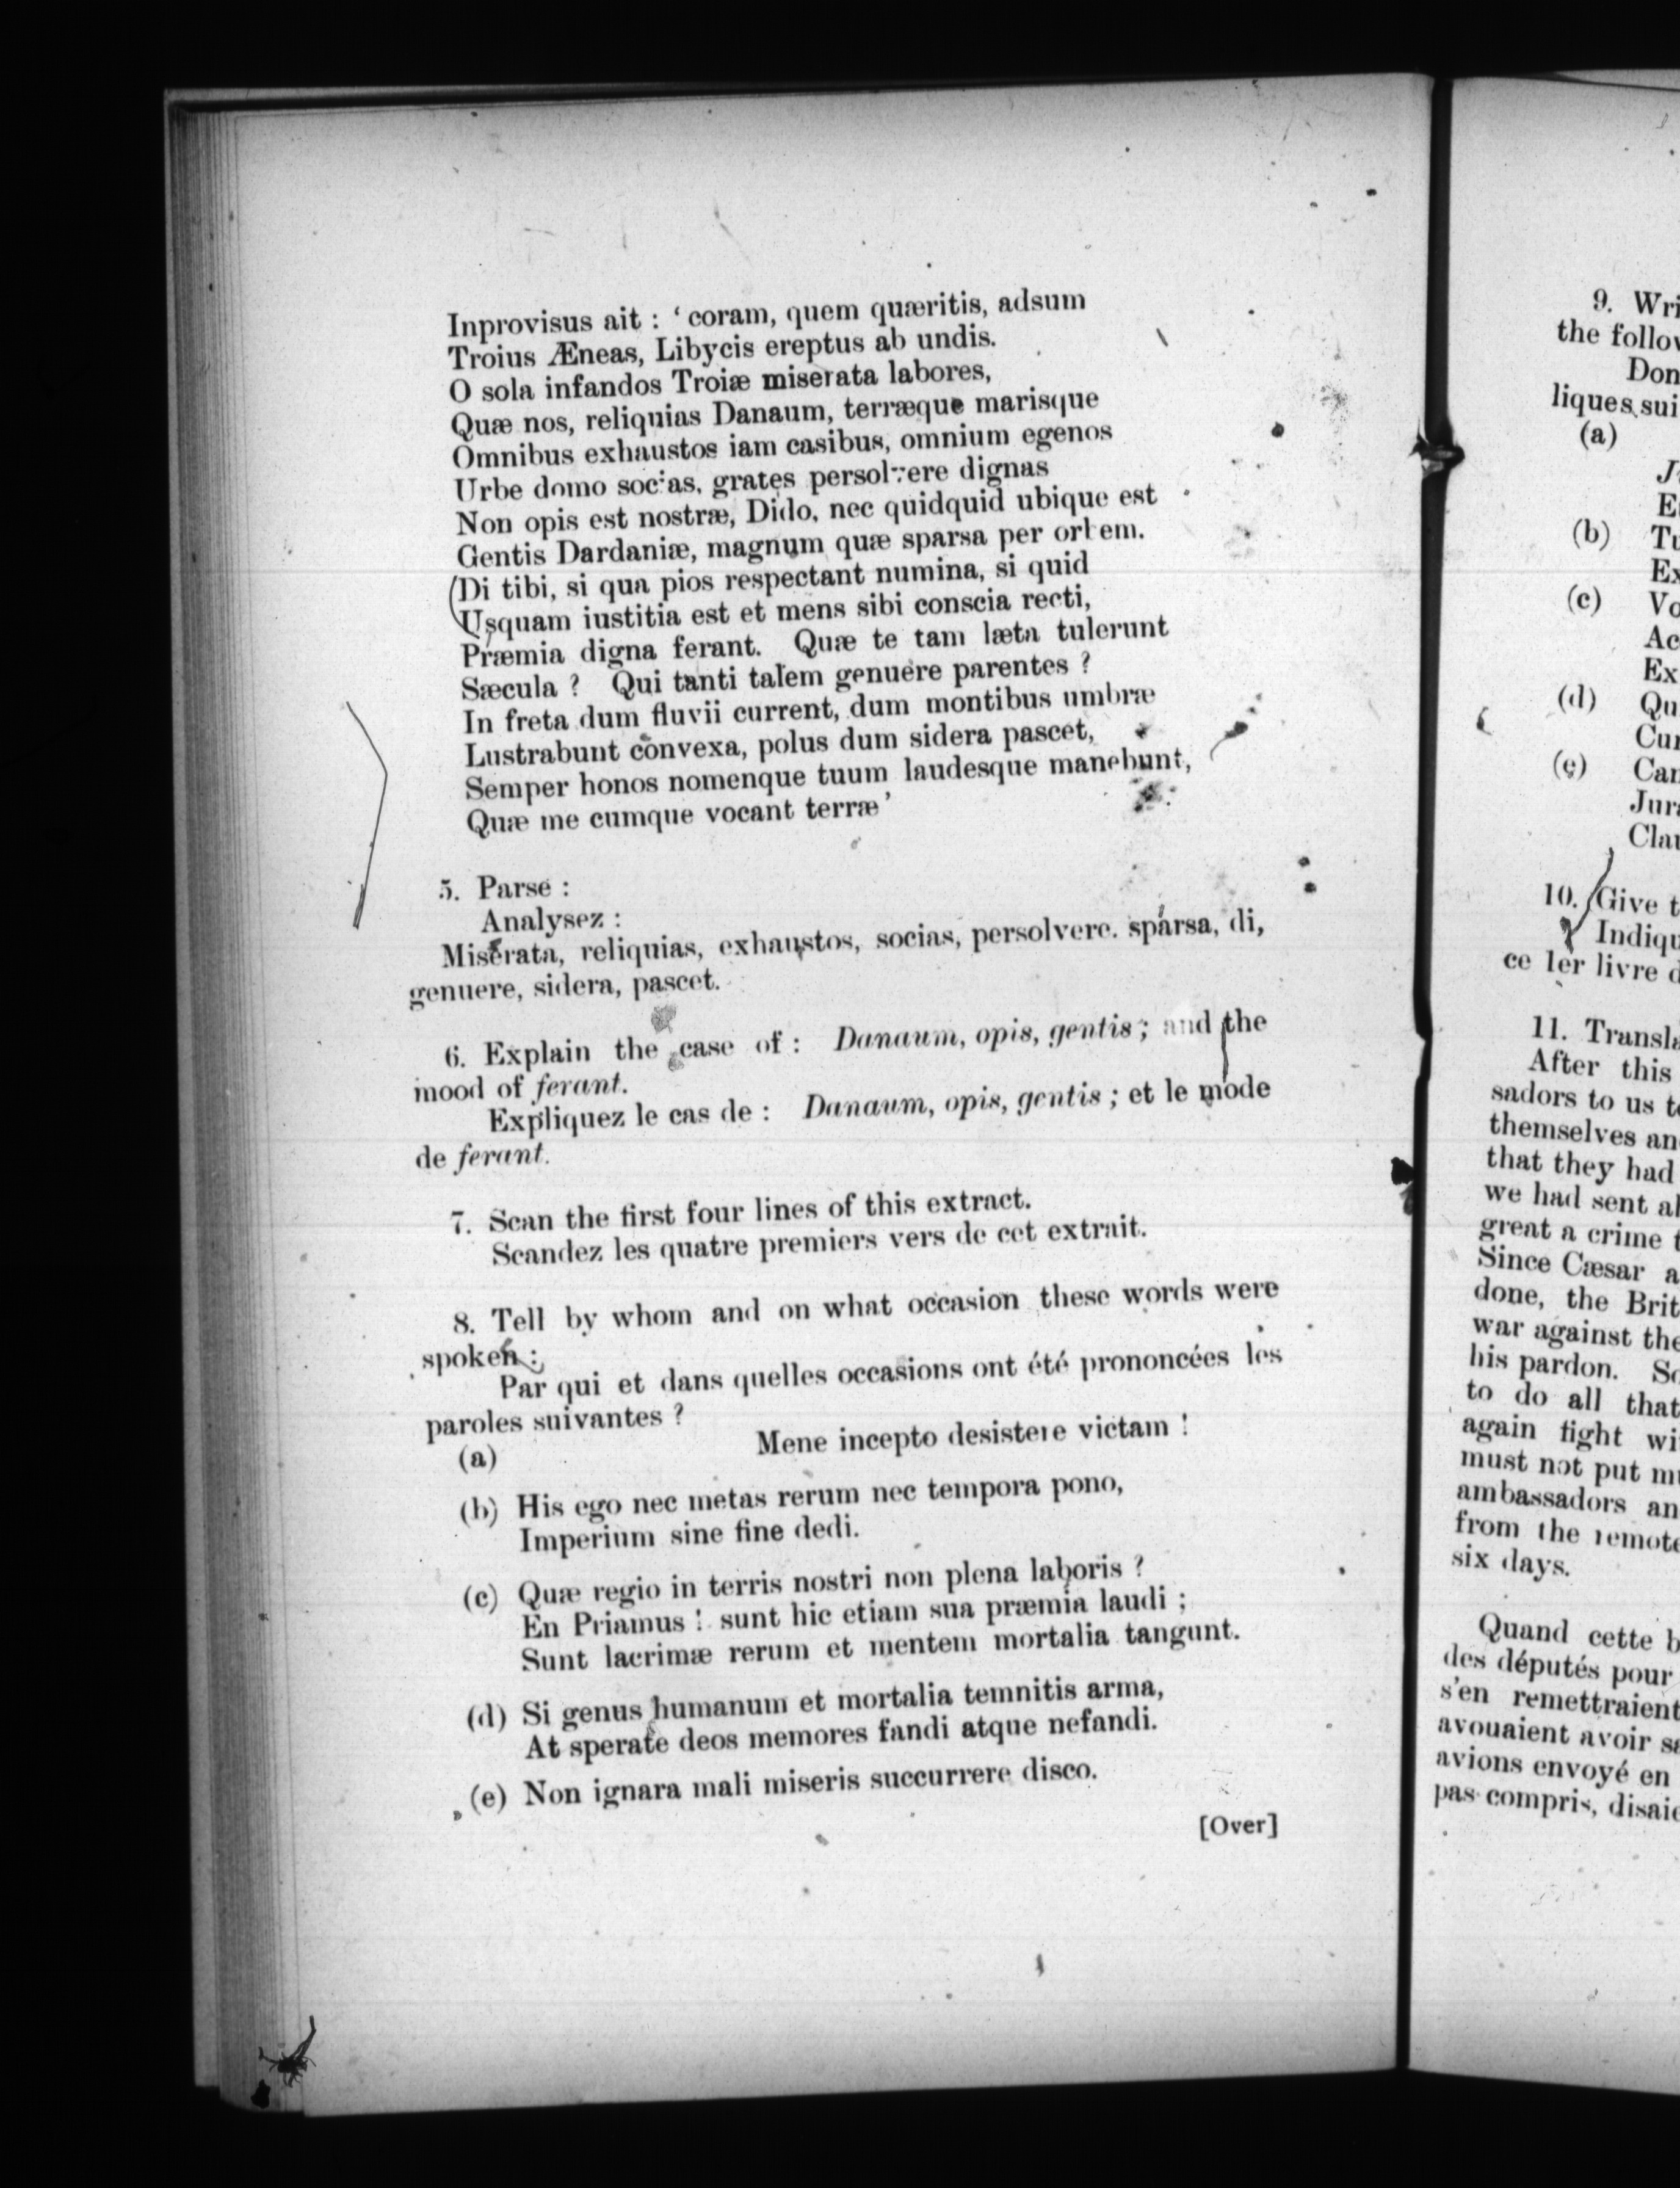 Inprovisus ait : ‘ coram, quem quæritis, adsum
Troius Æneas, Libycis ereptus ab undis.
O sola infandos Troiæ miserata labores,
Quæ nos, reliquias Danaum, terræque marisque
Omnibus exhaustos iam casibus, omnium egenos
Urbe domo socias, grates persolvere dignas
Non opis est nostræ, Dido, nec quidquid ubique est
Gentis Dardaniæ, magnum quæ sparsa per orbem.
Di tibi, si qua pios respectant numina, si quid
Usquam iustitia est et mens sibi conscia recti,
Præmia digna ferant. Quæ te tam læta tulerunt
Sæcula ? Qui tanti talem genuere parentes ?
In freta dum fluvii current, dum montibus umbræ
Lustrabunt convexa, polus dum sidera pascet,
Semper honos nomenque tuum laudesque manebunt,
Quæ me cumque vocant terræ ’
5. Parse :
Analysez :
Miserata, reliquias, exhaustos, socias, persolvere. sparsa, di,
genuere, sidera, pascet.
6. Explain the case of : Danaum, opis, gentis ; and the
mood of ferant.
Expliquez le cas de : Danaum, opis, gentis ; et le mode
de ferant.
7. Scan the first four lines of this extract.
Scandez les quatre premiers vers de cet extrait.
8. Tell by whom and on what occasion these words were
spoken :
Par qui et dans quelles occasions ont été prononcées les
paroles suivantes ?
(a) Mene incepto desistere victam !
(b) His ego nec metas rerum nec tempora pono,
Imperium sine fine dedi.
(c) Quæ regio in terris nostri non plena laboris ?
En Priamus ! sunt hic etiam sua præmia laudi ;
Sunt lacrimæ rerum et mentem mortalia tangunt.
(d) Si genus humanum et mortalia temnitis arma,
At sperate deos memores fandi atque nefandi.
(e) Non ignara mali miseris succurrere disco.
[Over]
9. Wri
the follow
Don
liques sui
(a)
J
E
(b) Tu
Ex
(c) Vo
Ac
Ex
(d) Qu
Cur
(e) Car
Jura
Clau
10. Give t
Indiqu
ce 1er livre d
11. Transla
After this
sadors to us t
themselves an
that they had
we had sent al
great a crime t
Since Cæsar a
done, the Brit
war against the
his pardon. So
to do all that
again fight wi
must not put mu
ambassadors an
from the remote
six days.
Quand cette b
des députés pour
s'en remettraient
avouaient avoir sa
avions envoyé en
pas compris, disaie